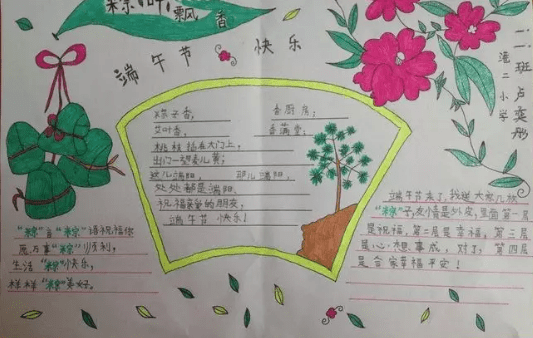 粽叶飘香
端午节 快乐
二班 卢奕彤
港二小学
粽子香, 香厨房;
艾叶香, 香满堂;
桃枝插在大门上,
出门一望麦儿黄;
这儿端阳, 那儿端阳,
处处都是端阳,
祝福亲爱的朋友,
端午节 快乐!
"粽"言"粽"语祝福您
愿万事"粽"顺利,
生活"粽"快乐,
样样"粽"美好,
端午节来了,我送大家几颗
"粽"子,友情是外皮,里面第一层
是祝福,第二层是幸福,第三层
是心想事成,对了,第四层
是合家幸福平安!